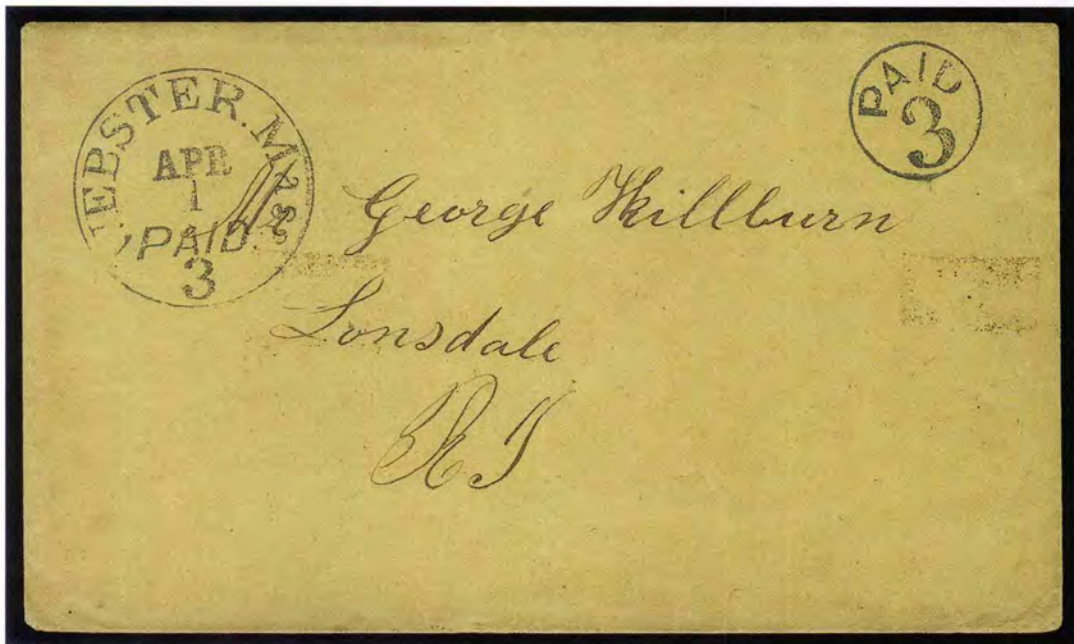 WEBSTER. Mass
APR
1
PAID
3
PAID
3
Mr George Killburn
Lonsdale
R I